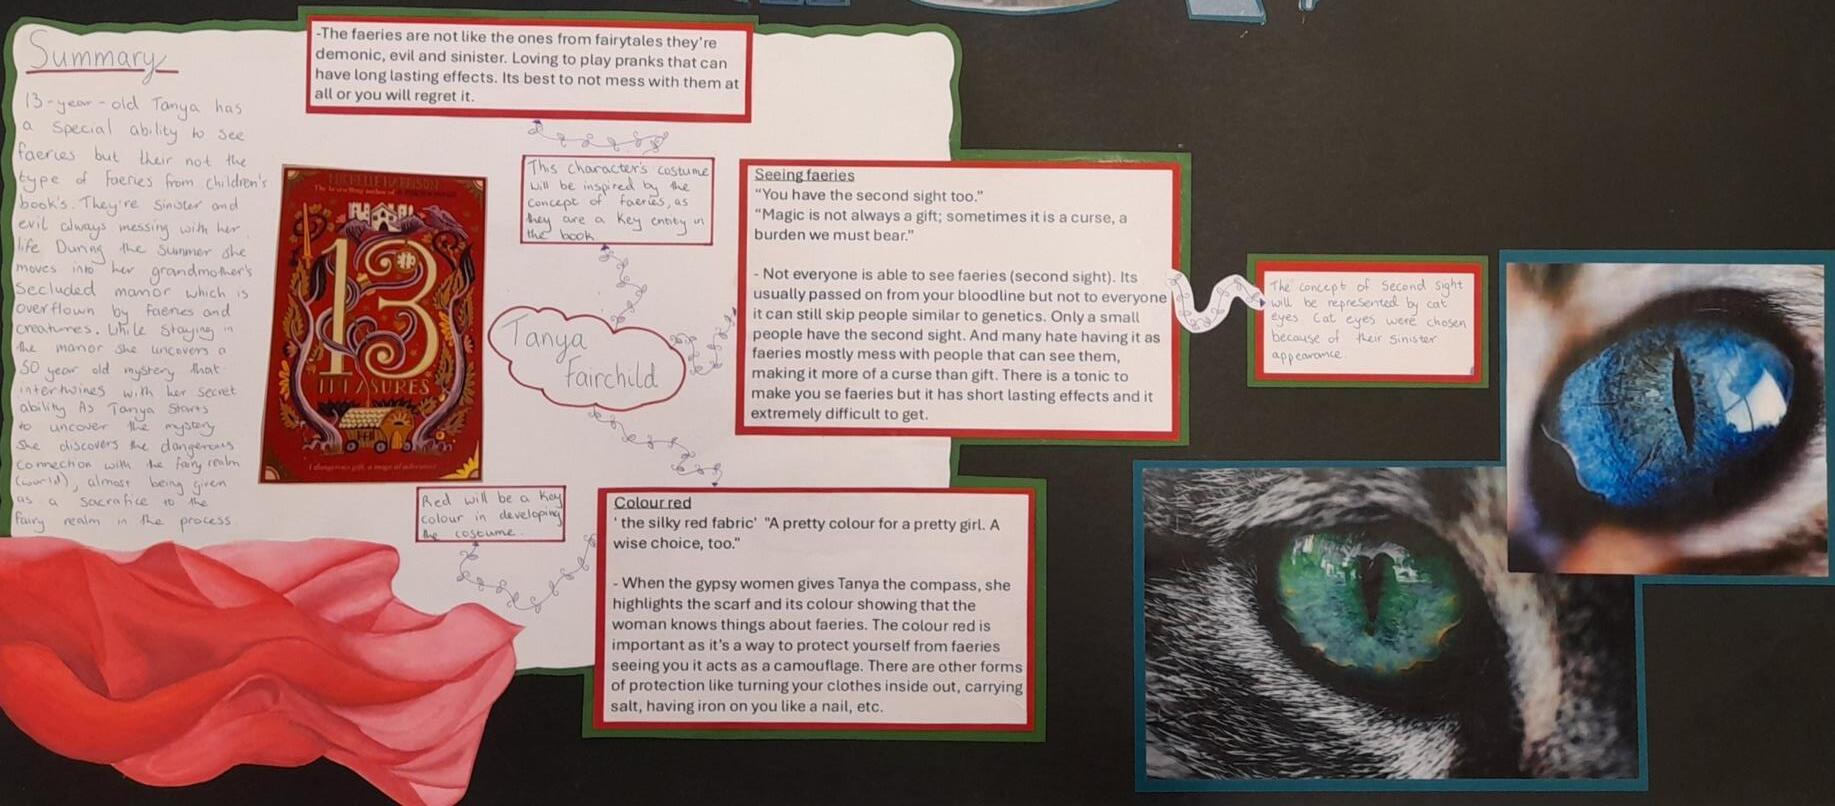 Summary
13-year-old Tanya has
a special ability to see
faeries but their not the
type of faeries from children's
book's. They're sinister and
evil always messing with her
life During the summer she
moves into her grandmother's
secluded manor which is
overflown by faeries and
creatures. While staying in
the manor she uncovers a
50 year old mystery that
intertwines with her secret
ability As Tanya starts
to uncover the mystery
she discovers the dangerous
connection with the fairy realm
(world), almost being given
as a sacrafice to the
fairy realm in the process
-The faeries are not like the ones from fairytales they're
demonic, evil and sinister. Loving to play pranks that can
have long lasting effects. Its best to not mess with them at
all or you will regret it.
MICHELLE HARRISON
The bestselling author of
13
TREASURES
This character's costume
will be inspired by the
concept of faeries, as
they are a key entity in
the book.
Tanya
Fairchild
Seeing faeries
"You have the second sight too."
"Magic is not always a gift; sometimes it is a curse, a
burden we must bear."
- Not everyone is able to see faeries (second sight). Its
usually passed on from your bloodline but not to everyone
it can still skip people similar to genetics. Only a small
people have the second sight. And many hate having it as
faeries mostly mess with people that can see them,
making it more of a curse than gift. There is a tonic to
make you se faeries but it has short lasting effects and it
extremely difficult to get.
The concept of Second Sight
will be represented by cat
eyes. Cat eyes were chosen
because of their sinister
appearance.
Red will be a key
colour in developing
the costume.
Colour red
' the silky red fabric' "A pretty colour for a pretty girl. A
wise choice, too."
- When the gypsy women gives Tanya the compass, she
highlights the scarf and its colour showing that the
woman knows things about faeries. The colour red is
important as it's a way to protect yourself from faeries
seeing you it acts as a camouflage. There are other forms
of protection like turning your clothes inside out, carrying
salt, having iron on you like a nail, etc.